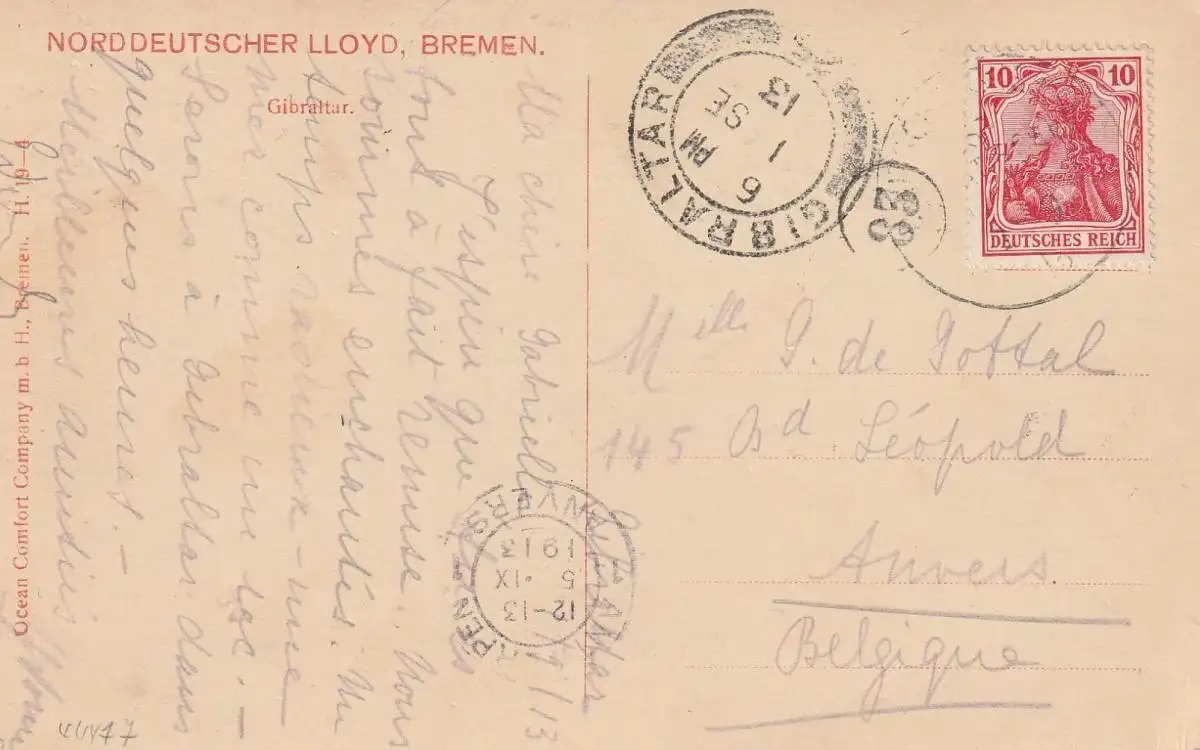 NORDDEUTSCHER LLOYD, BREMEN.
Gibraltar.
Ocean Comfort Company m. b H., Bremen. H. 19-4
Ma chère Gabrielle
J'espère que
tout à fait remise. Nous
sommes enchantés. Un
temps radieux - une
mer comme un lac. -
Serons à Gibraltar dans
quelques heures. -
Meilleures amitiés
/9/13
GIBRALTAR
6 PM
1
SE
13
83
10 10
DEUTSCHES REICH
ANVERS
12-13
5 · IX
1913
PEN
Melle G. de
145 Bd Léopold
Anvers
Belgique